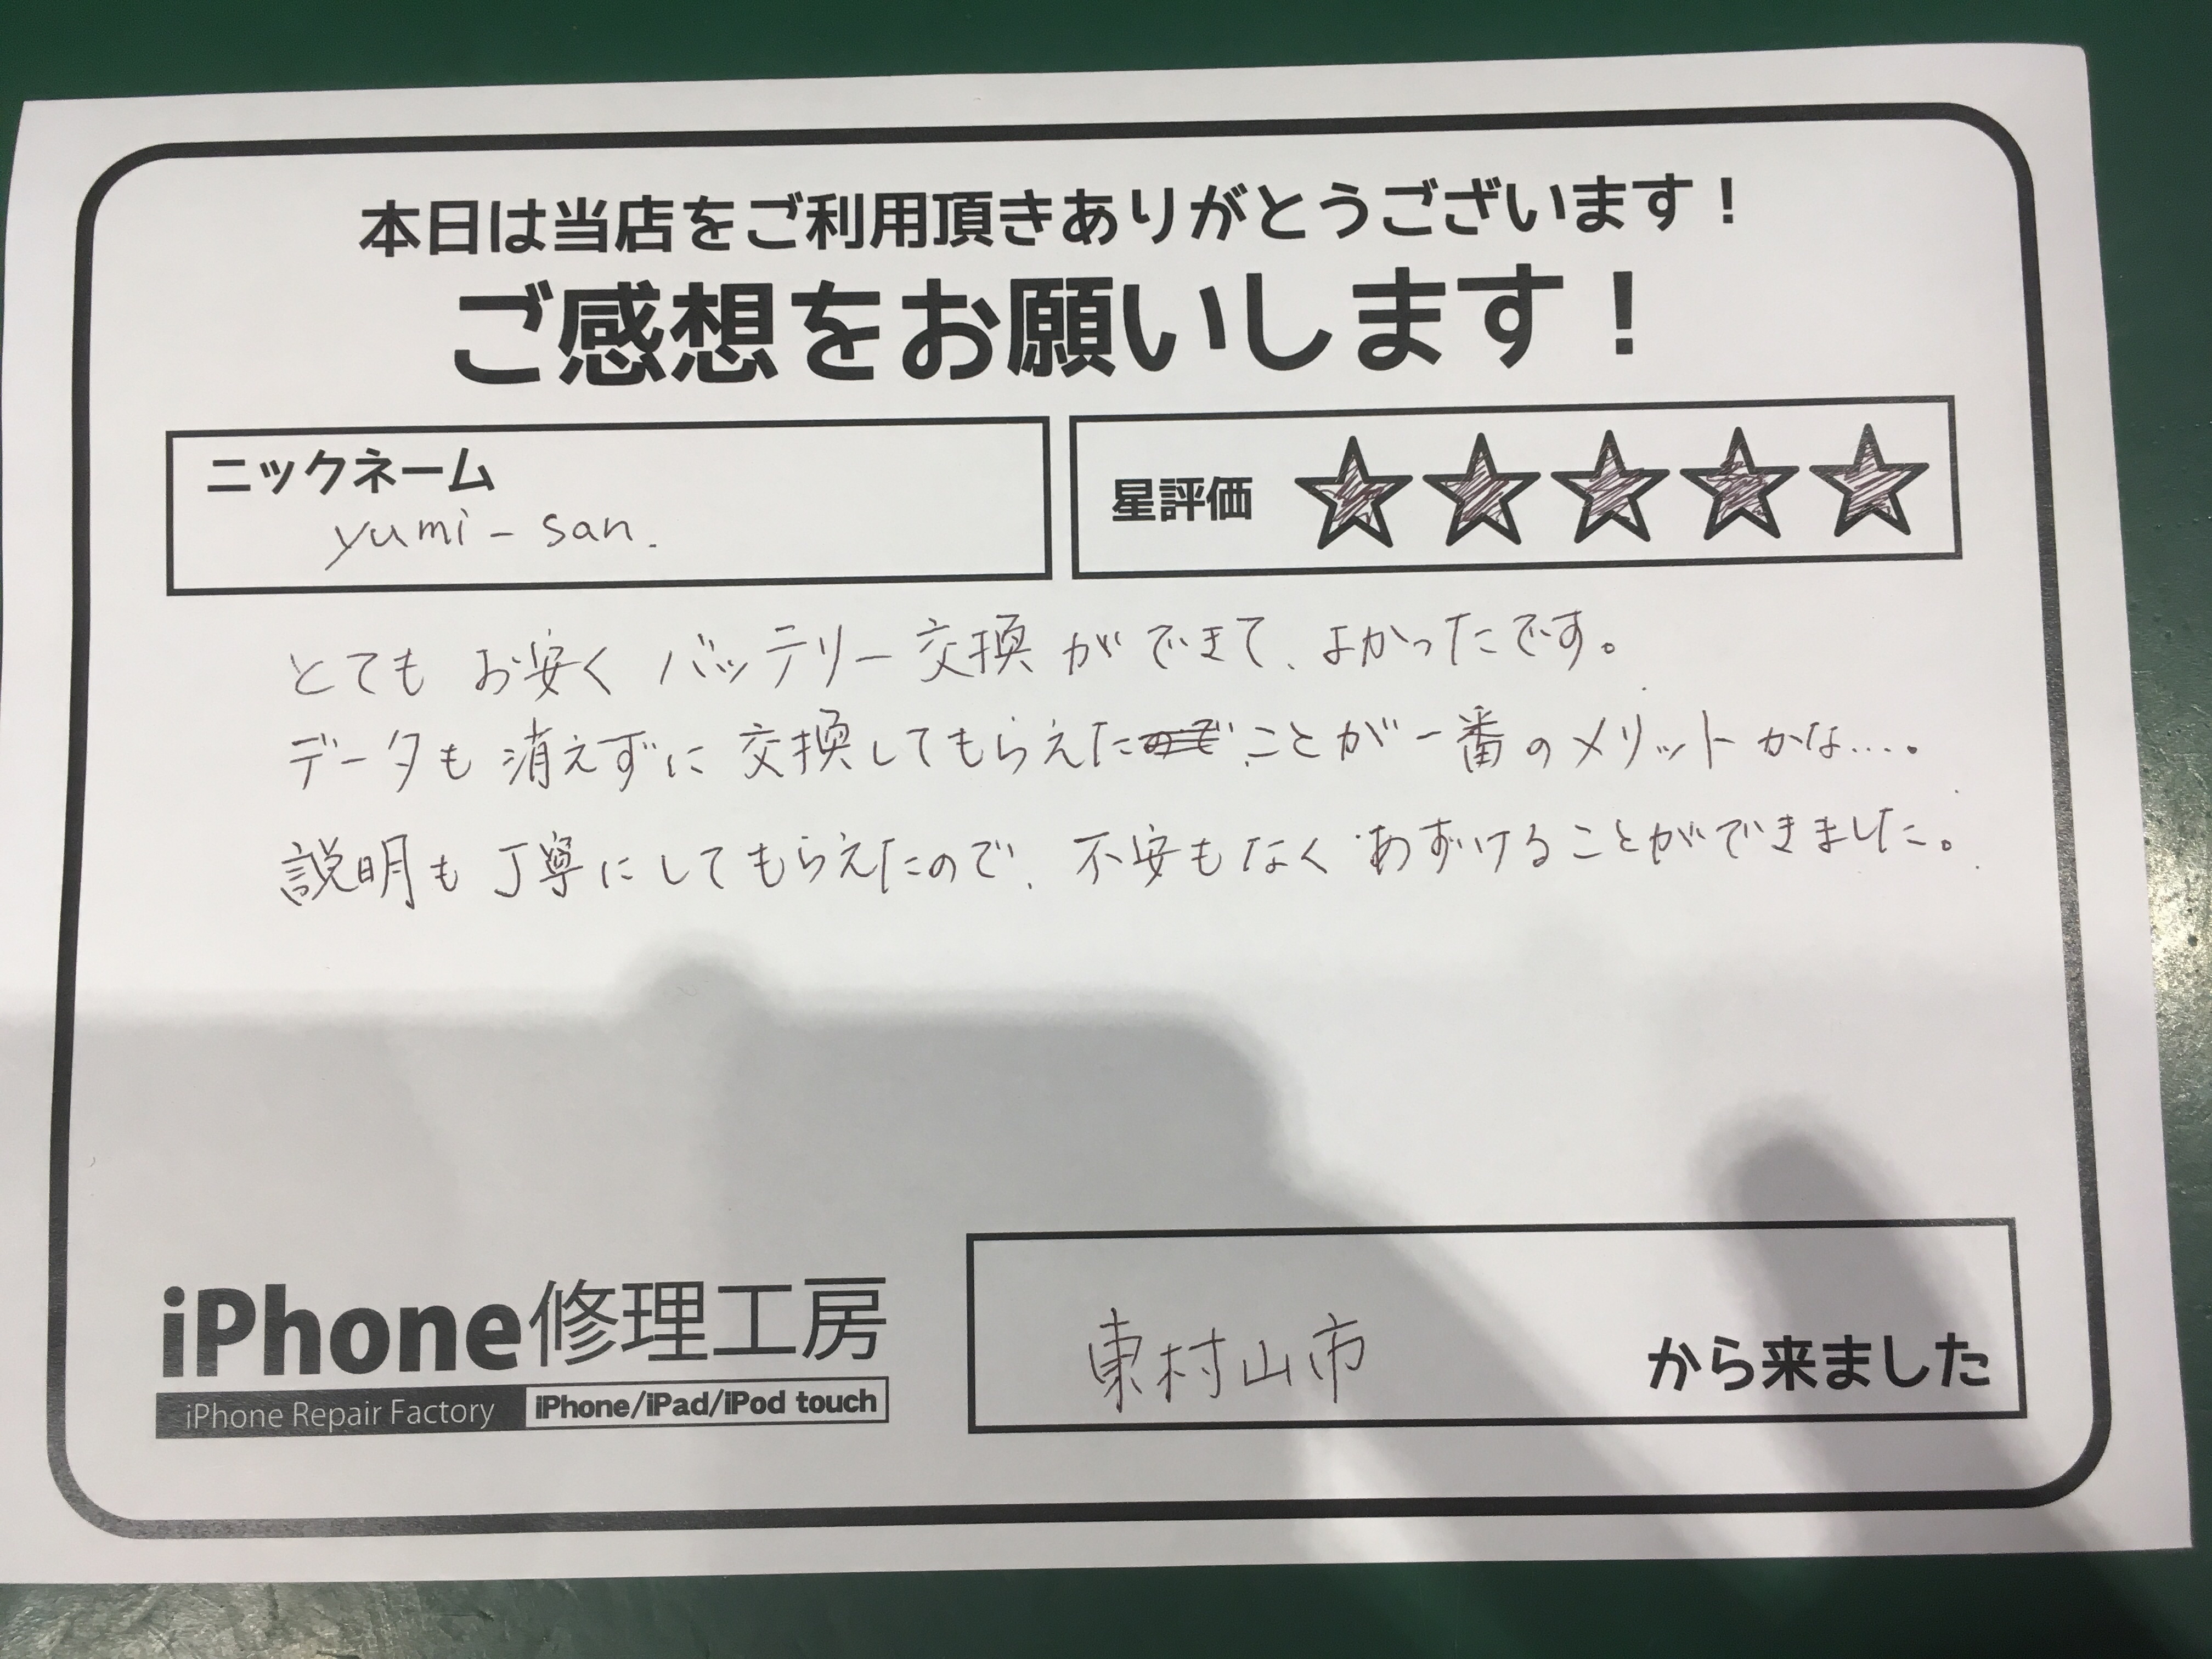 本日は当店をご利用頂きありがとうございます！
ご感想をお願いします！
ニックネーム
yumi-san.
星評価 ★★★★★
とても お安く バッテリー交換 ができて、よかったです。
データも 消えずに 交換してもらえたことが一番のメリットかな....。
説明も丁寧にしてもらえたので、不安もなくあずけることができました。
iPhone修理工房
iPhone Repair Factory iPhone/iPad/iPod touch
東村山市 から来ました